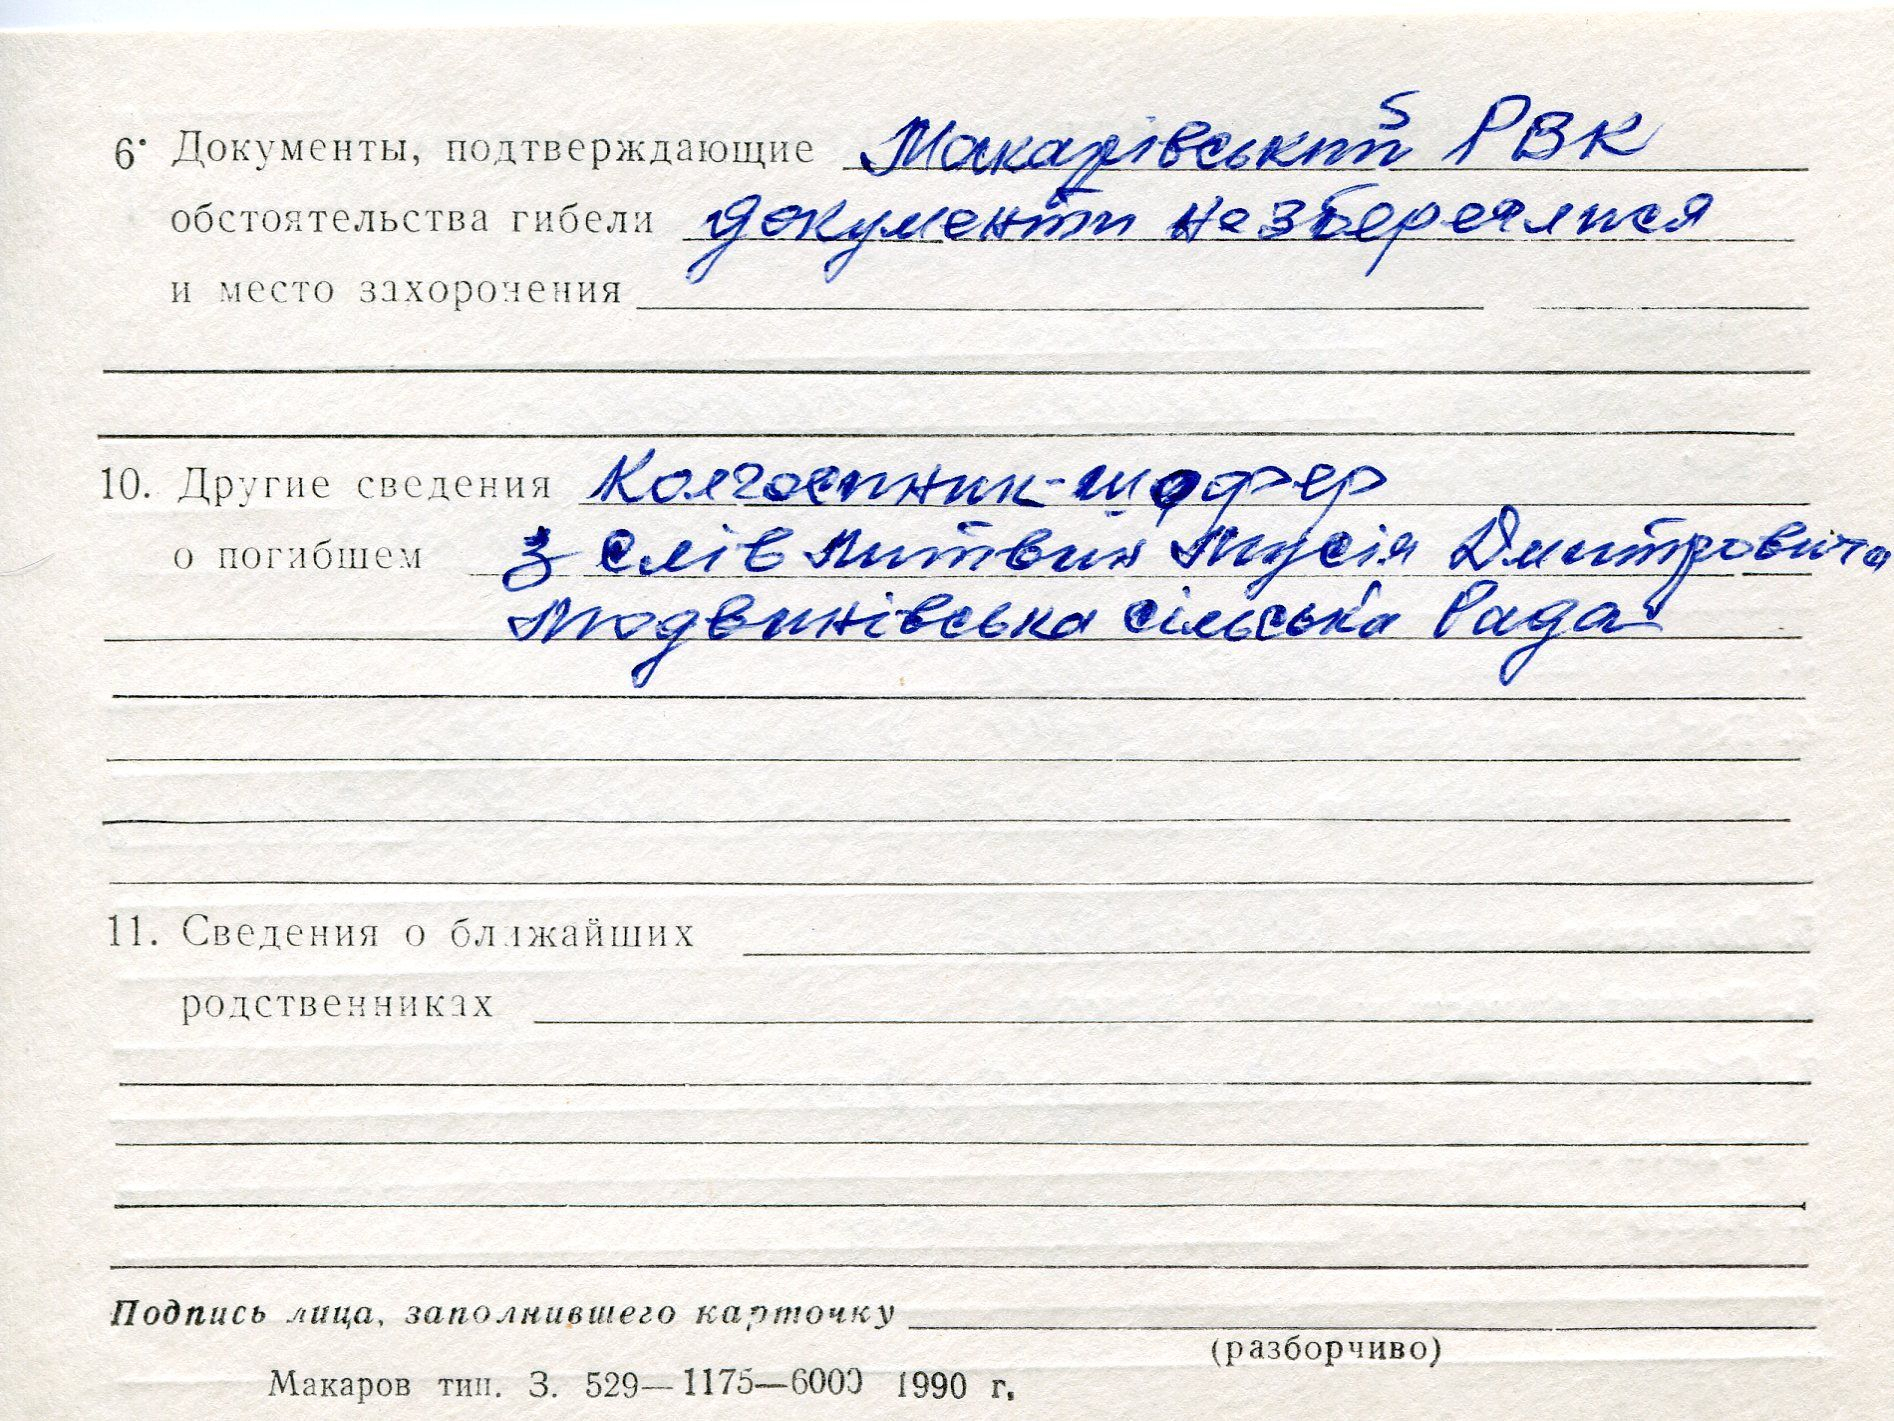 6· Документы, подтверждающие Макарівський РВК
обстоятельства гибели документи не збереглися
и место захоронения
10. Другие сведения Колгоспник-шофер
о погибшем з слів Литвин Мусія Дмитровича
Людвинівська сільська Рада
11. Сведения о ближайших
родственниках
Подпись лица, заполнившего карточку
(разборчиво)
Макаров тип. З. 529—1175—6000 1990 г.